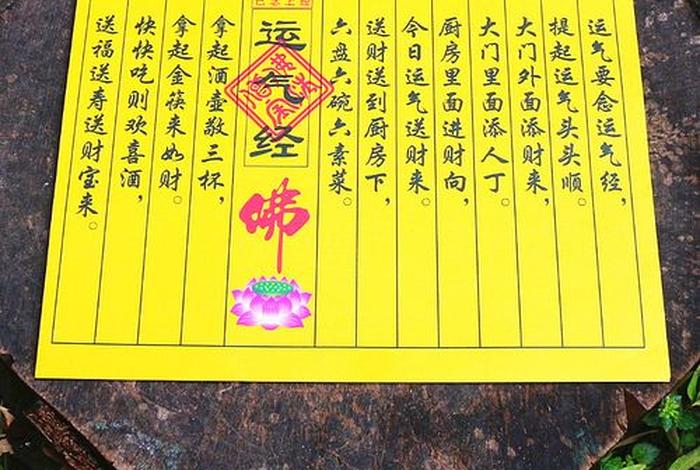 运气要念运气经，
提起运气头头顺。
大门外面添财来，
大门里面添人丁。
厨房里面进财向，
今日运气送财来。
送财送到厨房下，
六盘六碗六素菜。
运气经
佛
拿起酒壶敬三杯，
拿起金筷来如财。
快快吃则欢喜酒，
送福送寿送财宝来。